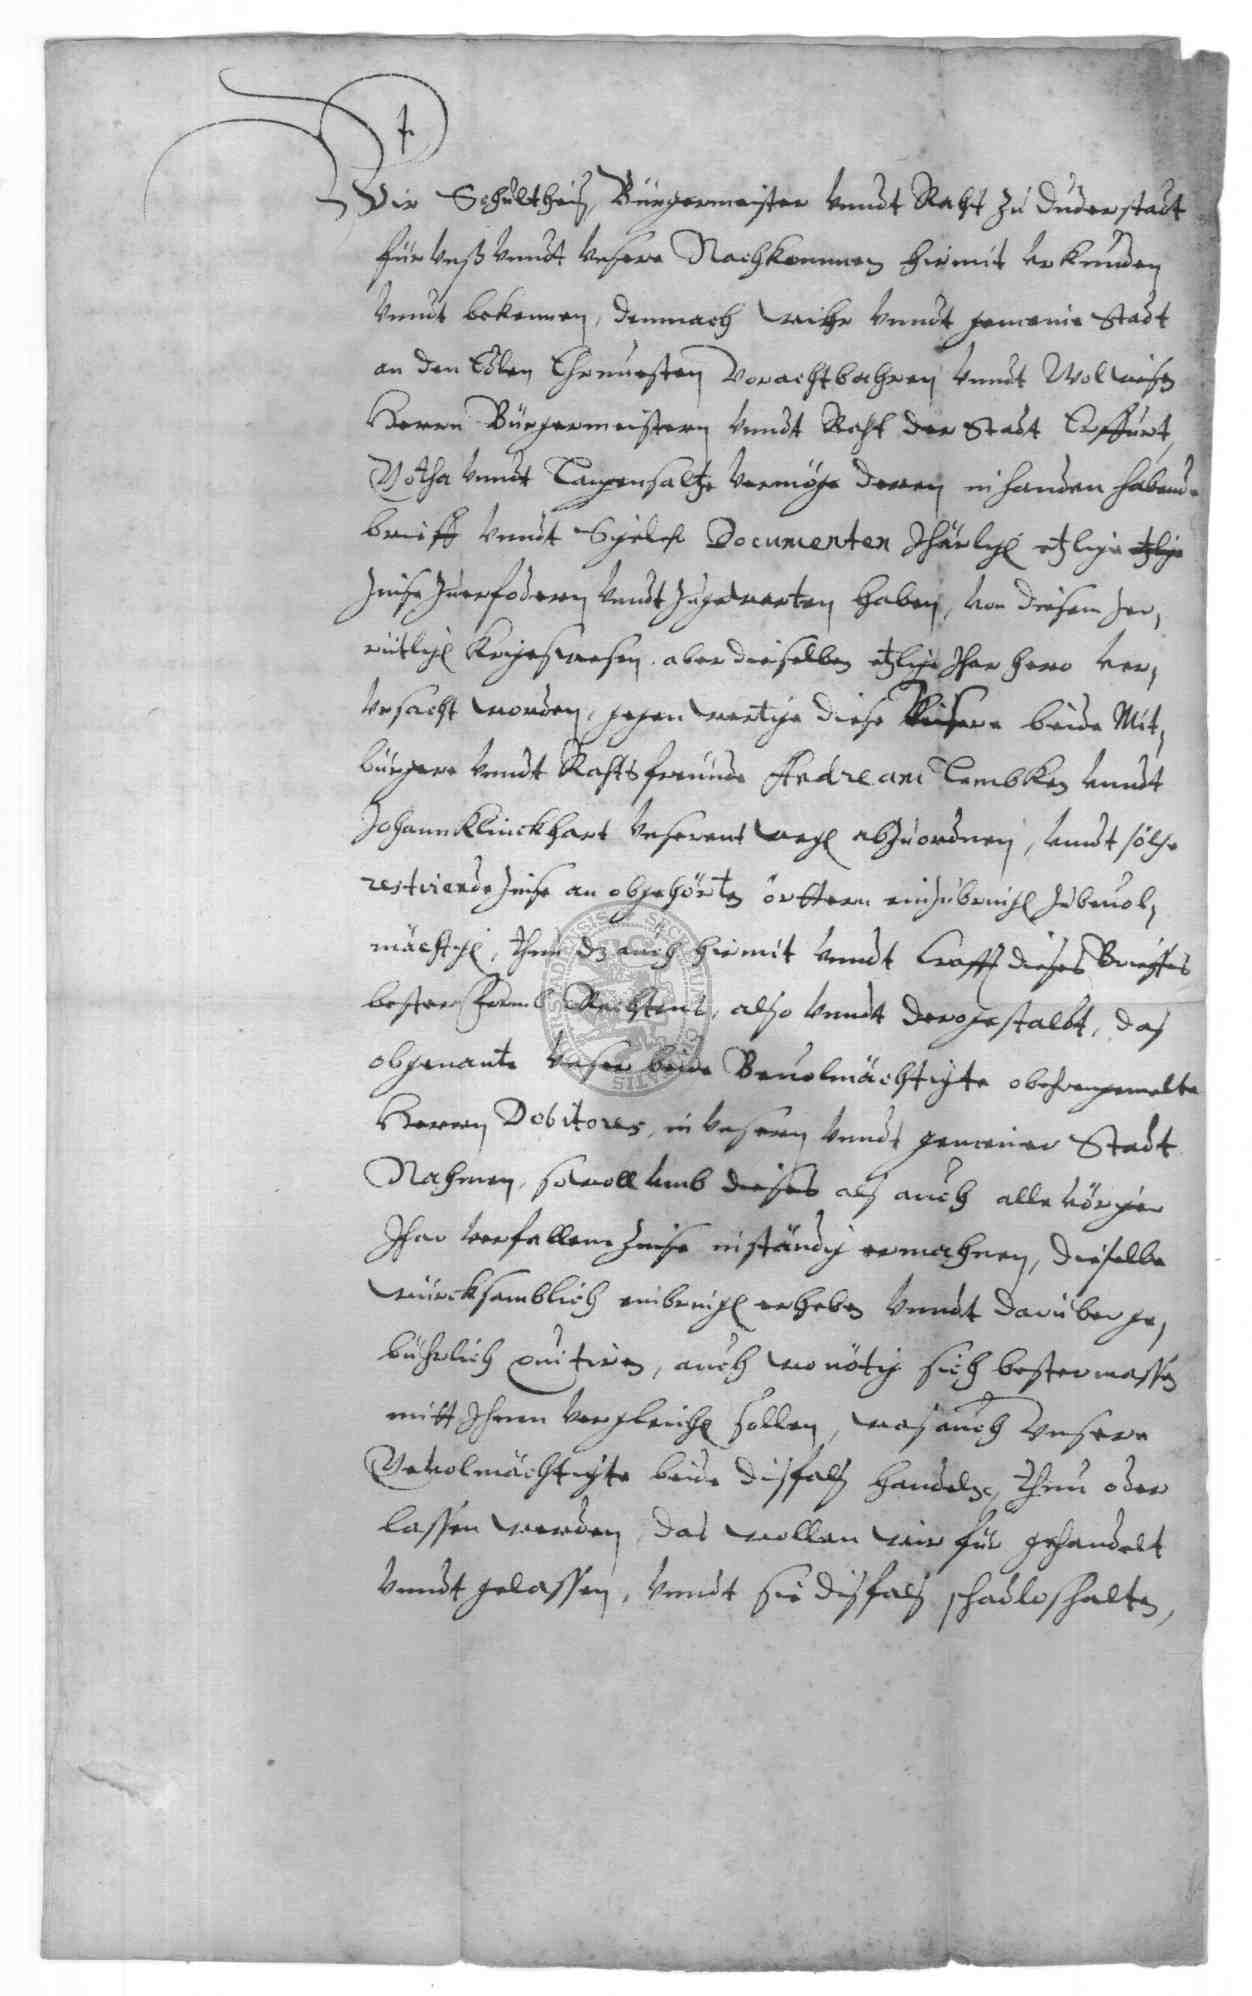 Wir Schultheiß, Bürgermeister vnndt Raht zu Duderstadt
für vnß vnndt vnsere Nachkommen hiemit vrkunden
vnndt bekennen, demnach wihr vnndt gemeine Stadt
an den Edlen Ehrnuesten Vorachtbahren vnndt Wolweisen
Herrn Bürgermeistern vnndt Raht der Stadt Erffurt,
Gotha vnndt Langensaltze vermöge deren in handen habende
brieff vnndt Siegelen Documenten Jhärlich etzliche
Zinse zuerfodern vnndt zugewarten haben, von diesem zer,
rütlichen Kriegswesen aber dieselben etzliche Jhar hero ver,
vrsacht worden, gegenwertige diese Vnsere beide Mit,
bürgere vnndt Rahtsfreunde Andream Lembken vnndt
Johann Klinckhart vnserent wegen abzuordnen, vnndt solche
restirende Zinse an obgehörten örttern einzubringen zubeuol,
mächtigen, thun dz auch hiemit vnndt Crafft dieses Brieffes
bester Form Rechtens, also vnndt dergestaldt, das
obgenante vnser beide Beuolmächtigte obehrengemelte
Herrn Debitores, in vnserm vnndt gemeiner Stadt
Nahmen, sowoll vmb dieses als auch alle vörige
Jhar verfallene Zinse inständig ermahnen, dieselbe
würcksamblich einbringen erheben vnndt darüber ge,
bührlich quitiren, auch wo nötig sich bestermassen
mitt Jhnen vergleichen sollen, was auch vnsere
Gevolmächtigte beide disfals handeln, thun oder
lassen werden, das wollen wir für gehandelt
vnndt gelassen, vnndt sie disfals schadlos halten,
SECRETUM